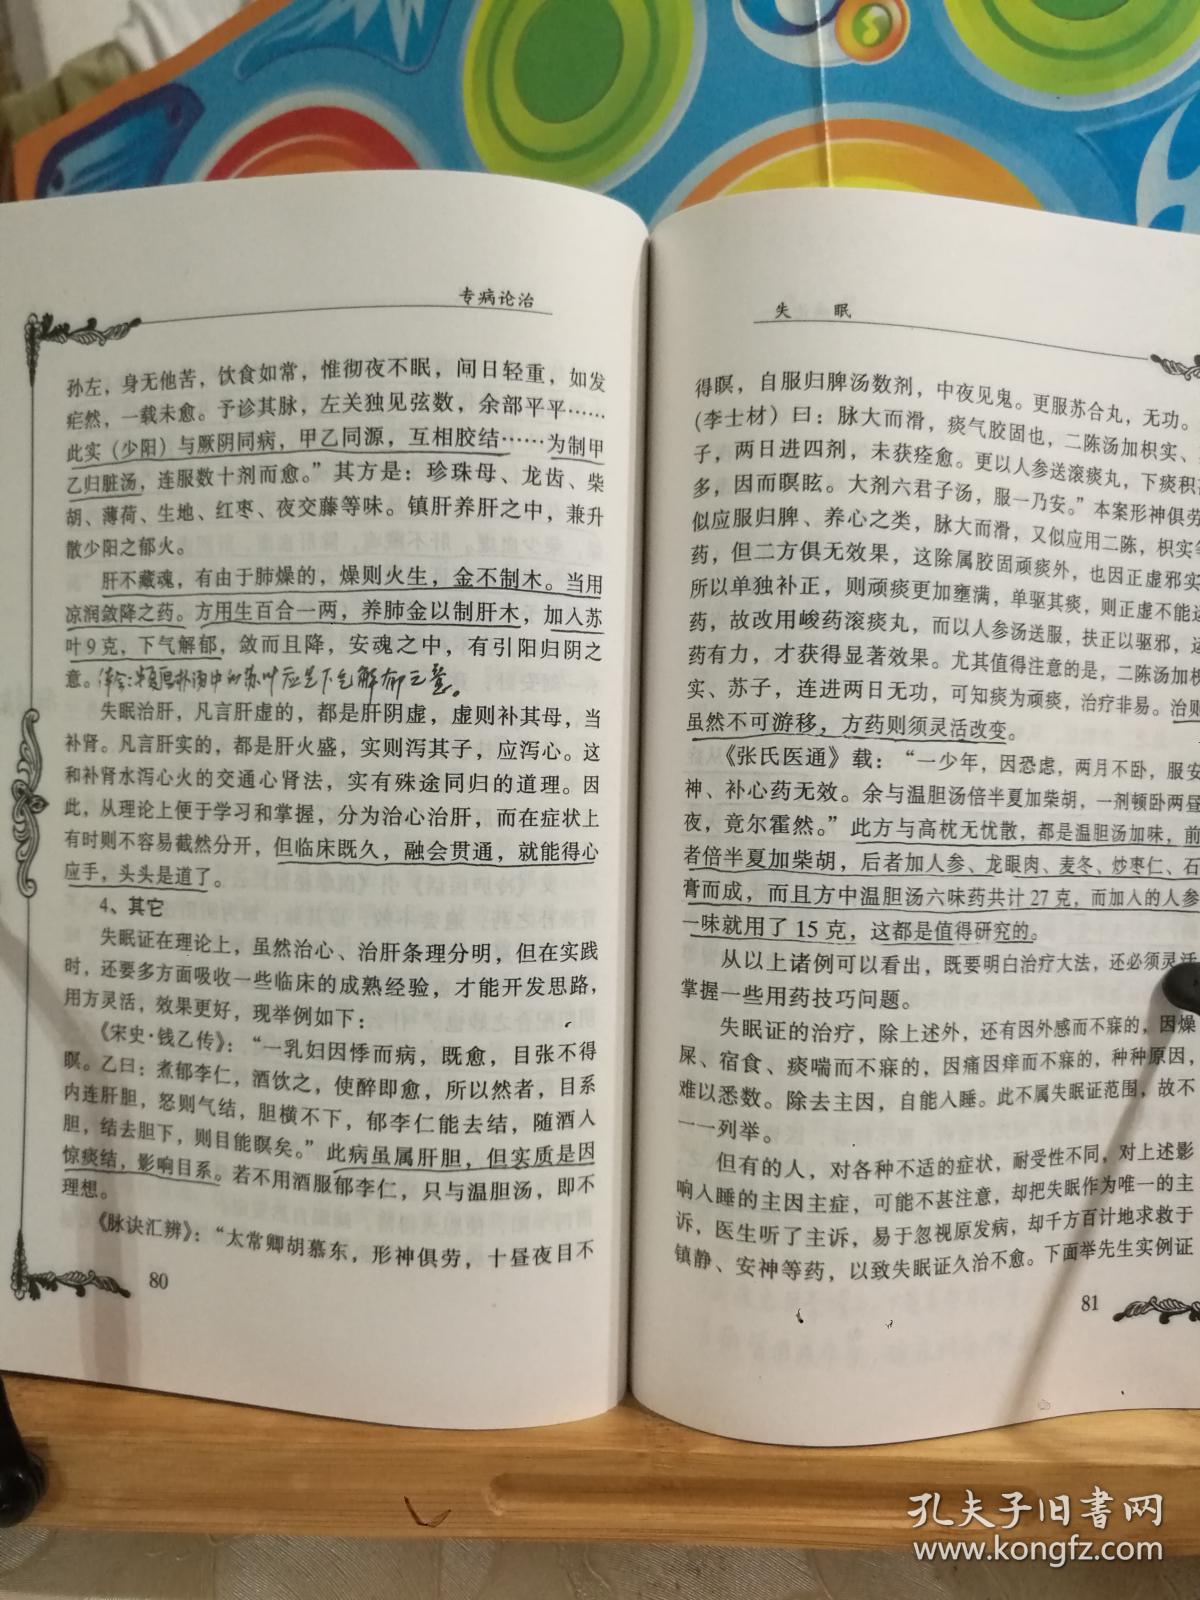 专病论治
孙左，身无他苦，饮食如常，惟彻夜不眠，间日轻重，如发
疟然，一载未愈。予诊其脉，左关独见弦数，余部平平……
此实（少阳）与厥阴同病，甲乙同源，互相胶结……为制甲
乙归脏汤，连服数十剂而愈。”其方是：珍珠母、龙齿、柴
胡、薄荷、生地、红枣、夜交藤等味。镇肝养肝之中，兼升
散少阳之郁火。
肝不藏魂，有由于肺燥的，燥则火生，金不制木。当用
凉润敛降之药。方用生百合一两，养肺金以制肝木，加入苏
叶9克，下气解郁，敛而且降，安魂之中，有引阳归阴之
意。体会：半夏厚朴汤中的苏叶应是下气解郁之意。
失眠治肝，凡言肝虚的，都是肝阴虚，虚则补其母，当
补肾。凡言肝实的，都是肝火盛，实则泻其子，应泻心。这
和补肾水泻心火的交通心肾法，实有殊途同归的道理。因
此，从理论上便于学习和掌握，分为治心治肝，而在症状上
有时则不容易截然分开，但临床既久，融会贯通，就能得心
应手，头头是道了。
4、其它
失眠证在理论上，虽然治心、治肝条理分明，但在实践
时，还要多方面吸收一些临床的成熟经验，才能开发思路，
用方灵活，效果更好，现举例如下：
《宋史·钱乙传》：“一乳妇因悸而病，既愈，目张不得
瞑。乙曰：煮郁李仁，酒饮之，使醉即愈，所以然者，目系
内连肝胆，怒则气结，胆横不下，郁李仁能去结，随酒入
胆，结去胆下，则目能瞑矣。”此病虽属肝胆，但实质是因
惊痰结，影响目系。若不用酒服郁李仁，只与温胆汤，即不
理想。
《脉诀汇辨》：“太常卿胡慕东，形神俱劳，十昼夜目不
80
失 眠
得瞑，自服归脾汤数剂，中夜见鬼。更服苏合丸，无功。
（李士材）曰：脉大而滑，痰气胶固也，二陈汤加枳实、
子，两日进四剂，未获痊愈。更以人参送滚痰丸，下痰积
多，因而瞑眩。大剂六君子汤，服一乃安。”本案形神俱劳
似应服归脾、养心之类，脉大而滑，又似应用二陈，枳实等
药，但二方俱无效果，这除属胶固顽痰外，也因正虚邪实
所以单独补正，则顽痰更加壅满，单驱其痰，则正虚不能运
药，故改用峻药滚痰丸，而以人参汤送服，扶正以驱邪，运
药有力，才获得显著效果。尤其值得注意的是，二陈汤加枳
实、苏子，连进两日无功，可知痰为顽痰，治疗非易。治则
虽然不可游移，方药则须灵活改变。
《张氏医通》载：“一少年，因恐虑，两月不卧，服安
神、补心药无效。余与温胆汤倍半夏加柴胡，一剂顿卧两昼
夜，竟尔霍然。”此方与高枕无忧散，都是温胆汤加味，前
者倍半夏加柴胡，后者加人参、龙眼肉、麦冬、炒枣仁、石
膏而成，而且方中温胆汤六味药共计27克，而加入的人参
一味就用了15克，这都是值得研究的。
从以上诸例可以看出，既要明白治疗大法，还必须灵活
掌握一些用药技巧问题。
失眠证的治疗，除上述外，还有因外感而不寐的，因燥
屎、宿食、痰喘而不寐的，因痛因痒而不寐的，种种原因，
难以悉数。除去主因，自能入睡。此不属失眠证范围，故不
一一列举。
但有的人，对各种不适的症状，耐受性不同，对上述影
响入睡的主因主症，可能不甚注意，却把失眠作为唯一的主
诉，医生听了主诉，易于忽视原发病，却千方百计地求救于
镇静、安神等药，以致失眠证久治不愈。下面举先生实例证
81
孔夫子旧书网
www.kongfz.com